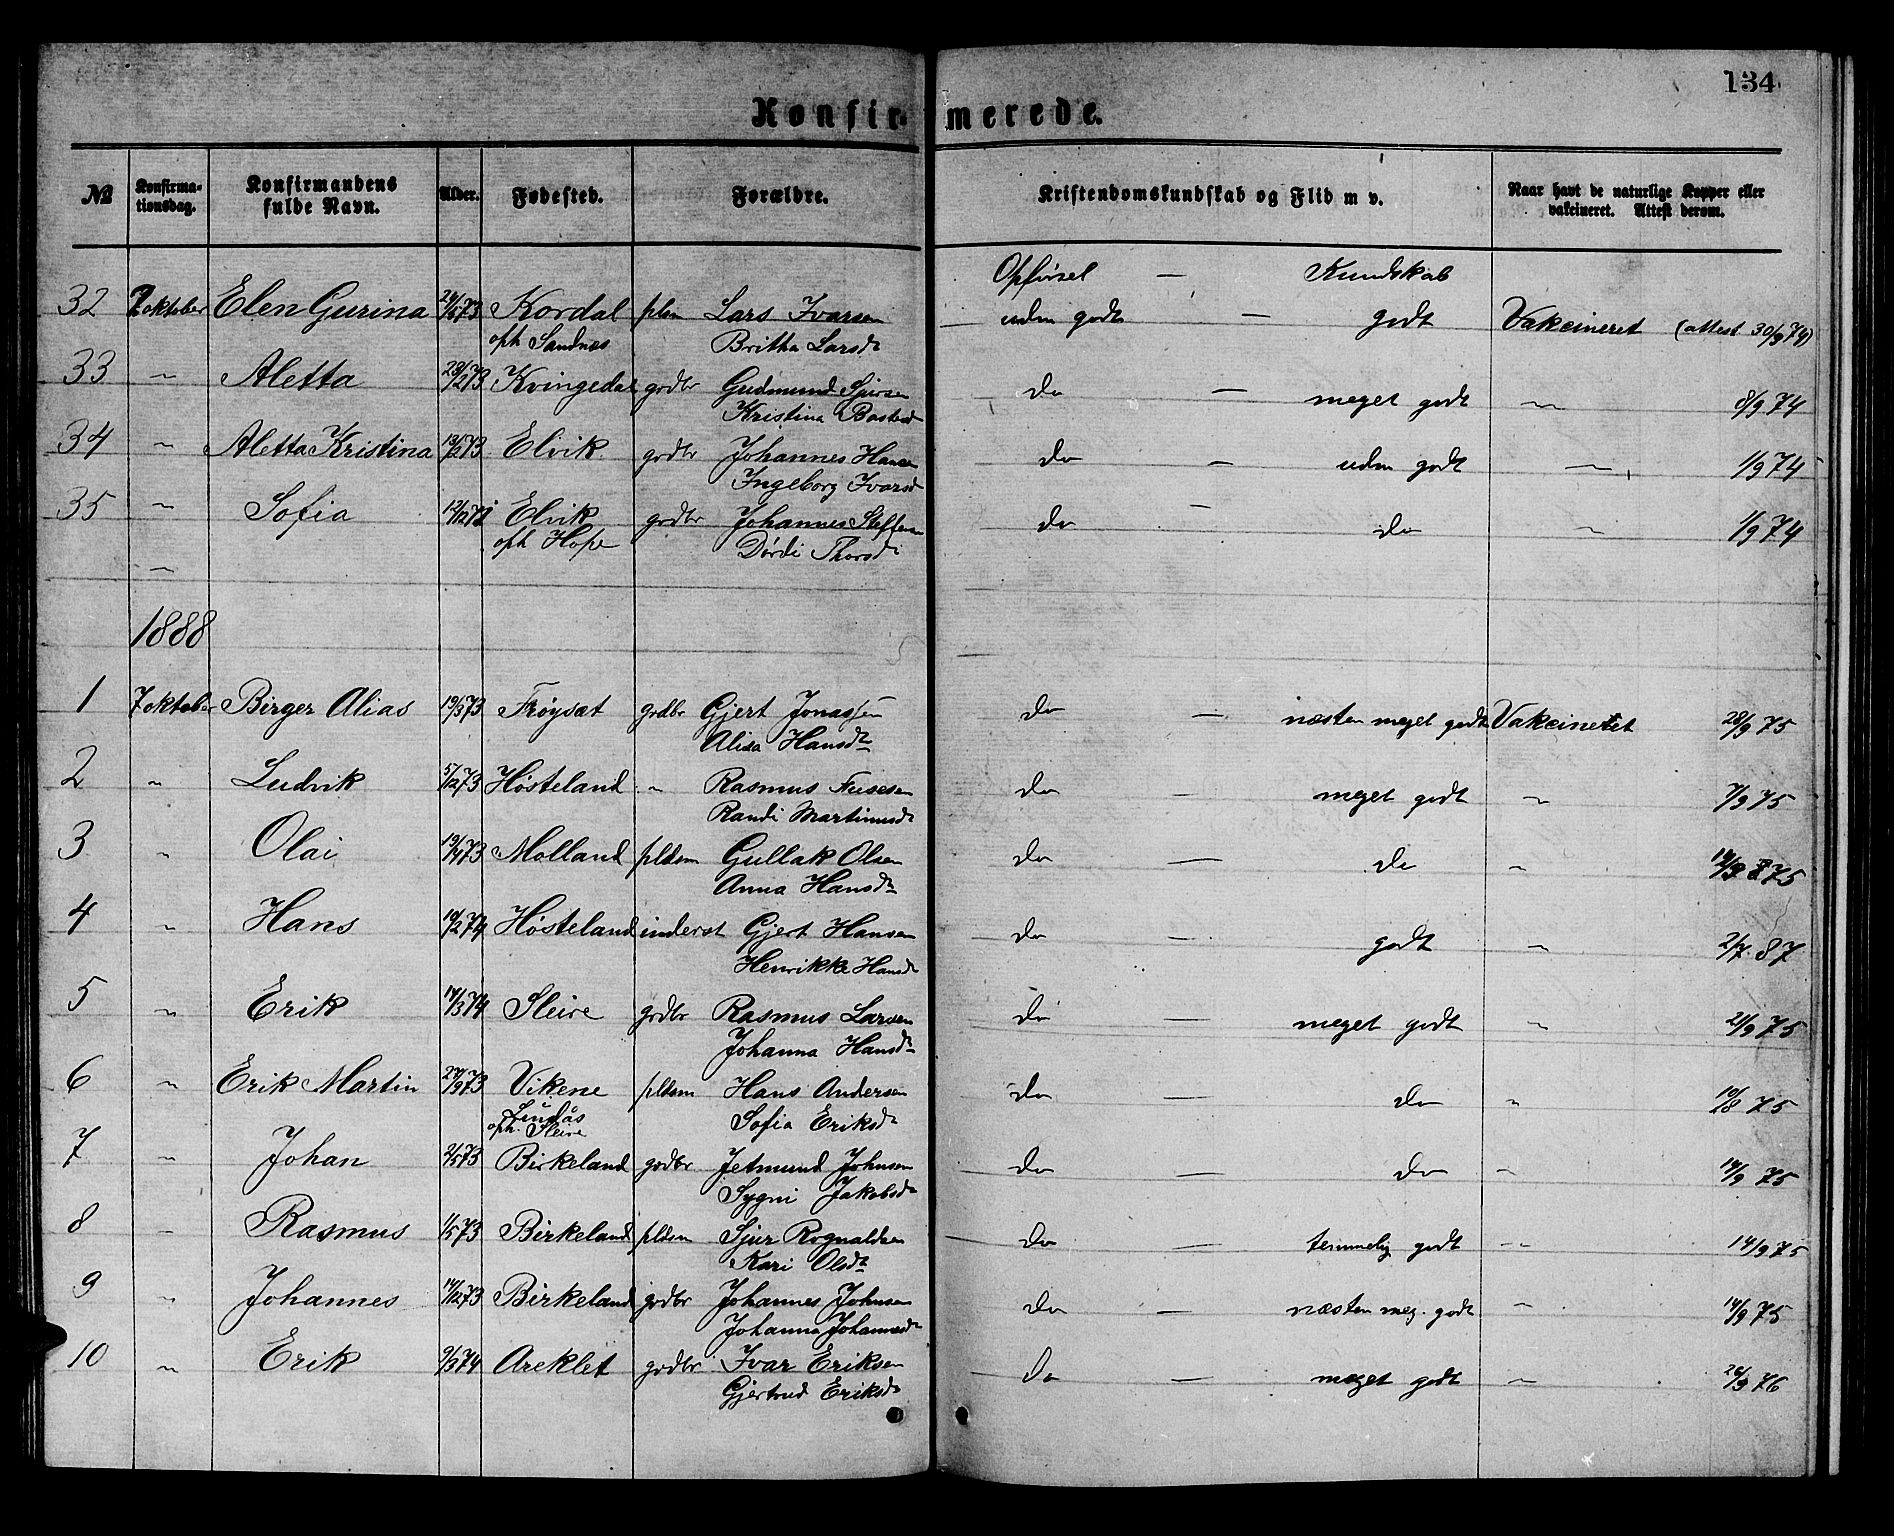 134
Konfirmerede.
№
Konfirmationsdag.
Konfirmandens fulde Navn.
Alder.
Fødested.
Forældre.
Kristendomskundskab og Flid m v.
Naar havt de naturlige Kopper eller vakcineret. Attest derom.
Opførsel — Kundskab
32 2 oktober Elen Gurina 24/5 73 Kordal plsm Lars Ivarsen uden godt — godt Vakcineret (attest 30/9 74)
oph Sandnes Britha Larsdt
33 " Aletta 23/2 73 Kvingedal grdbr Gudmund Sjursen do — meget godt " 8/9 74
Kristina Bastesdt
34 " Aletta Kristina 13/2 73 Elvik grdbr Johannes Hansen do — uden godt " 1/9 74
Ingeborg Ivarsdt
35 " Sofia 12/12 72 Elvik grdbr Johannes Steffens do — do " 1/9 74
oph Hope Dørdi Thorsdt
"
1888
1 7 oktober Birger Alias 19/5 73 Frøysæt grdbr Gjert Jonassen do — næsten meget godt Vakcineret 28/9 75
Alisa Hansdt
2 " Ludvik 5/12 73 Høsteland " Rasmus do — meget godt " 7/9 75
Randi Martinusdt
3 " Olai 19/4 73 Molland pldsm Gullak Olsen do — do " 75
Anna Hansdt
4 " Hans 10/2 74 Høsteland inderst Gjert Hansen do — godt " 2/7 87
Henrikke Hansdt
5 " Erik 17/3 74 Sleire grdbr Rasmus Larsen do — meget godt " 21/9 75
Johanna Hansdt
6 " Erik Martin 27/9 73 Vikene pldsm Hans Andersen do — do " 10/8 75
Lindås Sofia Eriksdt
oph. Sleire
7 " Johan 2/5 73 Birkeland grdbr Jetmund Johnsen do — do " 14/9 75
Sygni Jakobsdt
8 " Rasmus 1/5 73 Birkeland pldsm Sjur Rognaldsen do — temmelig godt " 14/9 75
Kari Olsdt
9 " Johannes 14/12 73 Birkeland grdbr Johannes Johnsen do — næsten meg. godt " 14/9 75
Johanna Johannesdt
10 " Erik 9/3 74 Areklet grdbr Ivar Eriksen do — meget godt " 26/9 76
Gjertrud Eriksdt